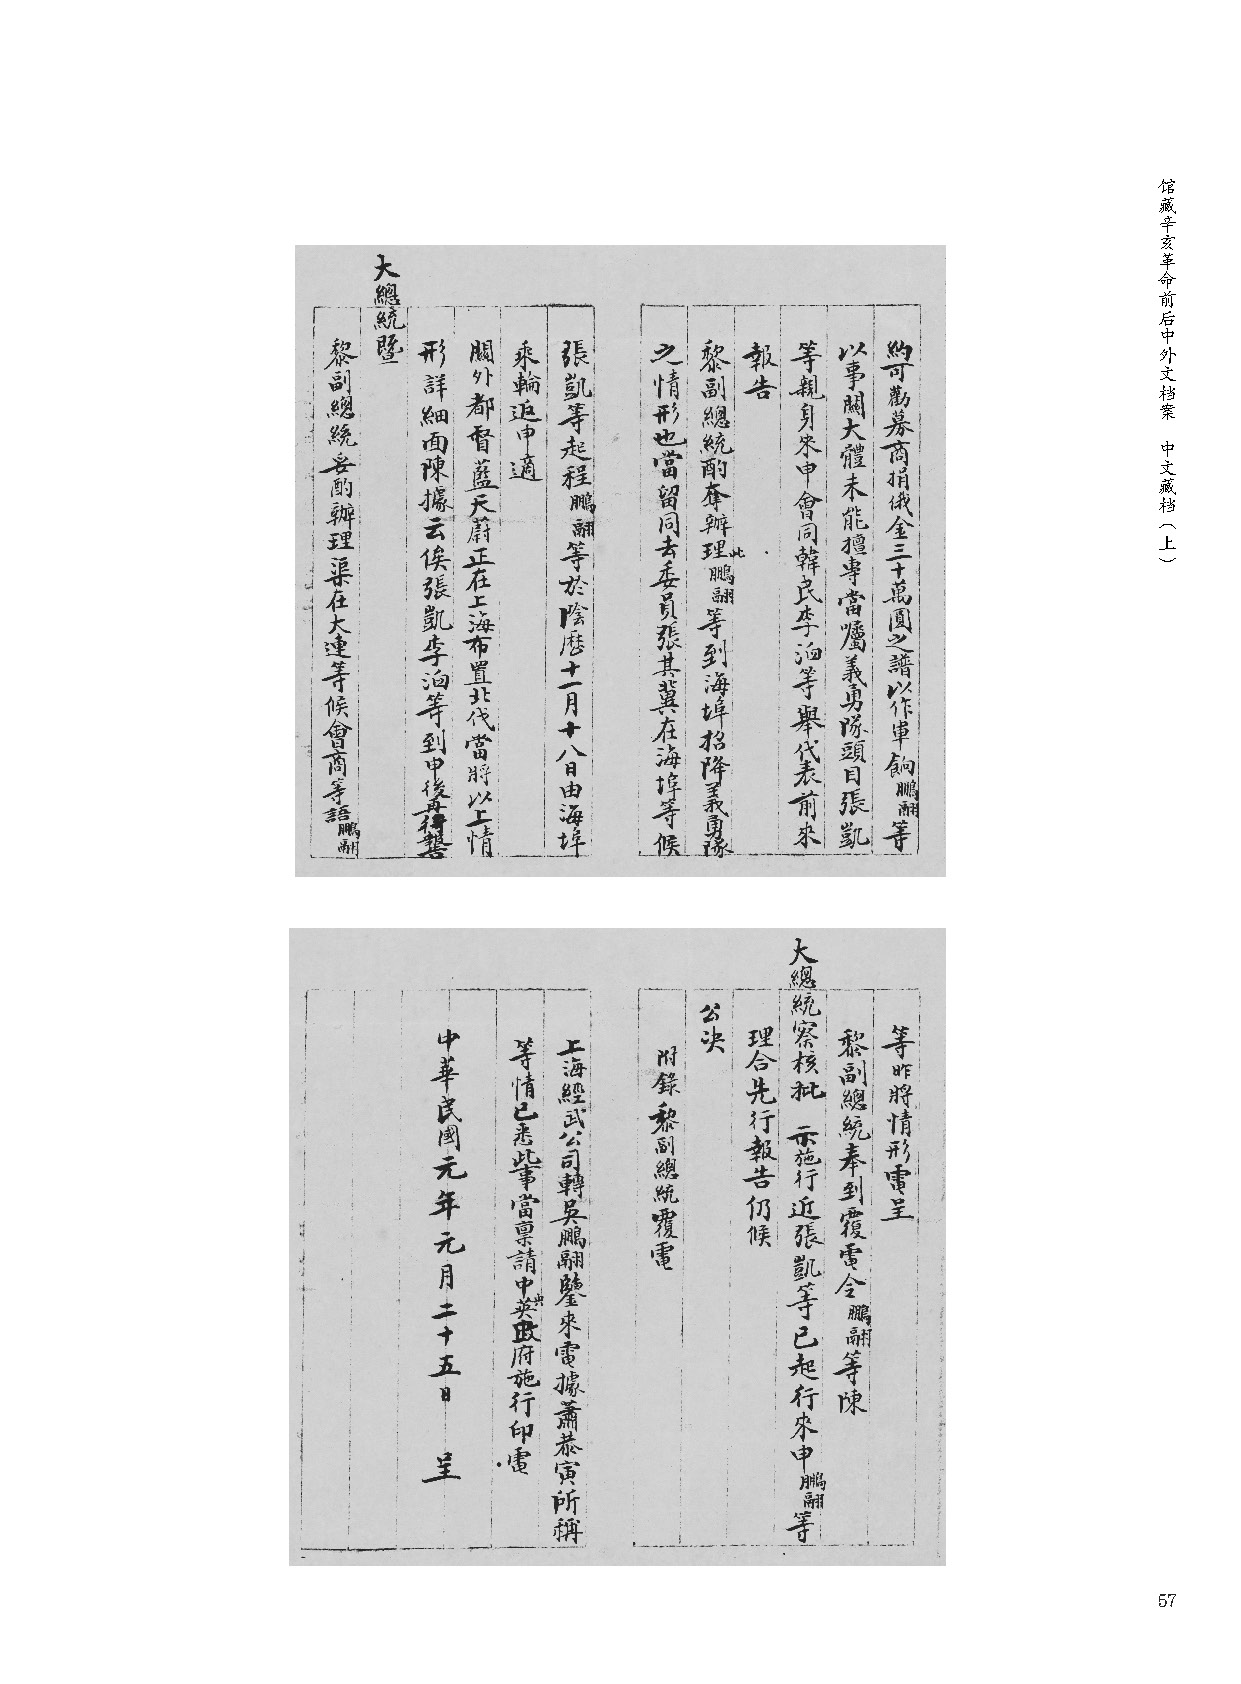 馆藏辛亥革命前后中外文档案　中文藏档（上）
約可勸募商捐俄金三十萬圓之譜以作軍餉鵬翮等
以事關大體未能擅專當囑義勇隊頭目張凱
等親身來申會同韓民李泊等舉代表前來
報告
黎副總統酌奪辦理此鵬翮等到海埠招降義勇隊
之情形也當留同去委員張其冀在海埠等候
張凱等起程鵬翮等於陰歷十一月十八日由海埠
乘輪返申適
關外都督藍天蔚正在上海布置北伐當將以上情
形詳細面陳據云俟張凱李泊等到申後再行報告
大總統暨
黎副總統妥酌辦理渠在大連等候會商等語鵬翮
等昨將情形電呈
黎副總統奉到覆電令鵬翮等陳
大總統察核批示施行近張凱等已起行來申鵬翮等
理合先行報告仍候
公決
附錄黎副總統覆電
上海經武公司轉吳鵬翮鑒來電據蕭恭寅所稱
等情已悉此事當稟請中央政府施行印電
中華民國元年元月二十五日　呈
57